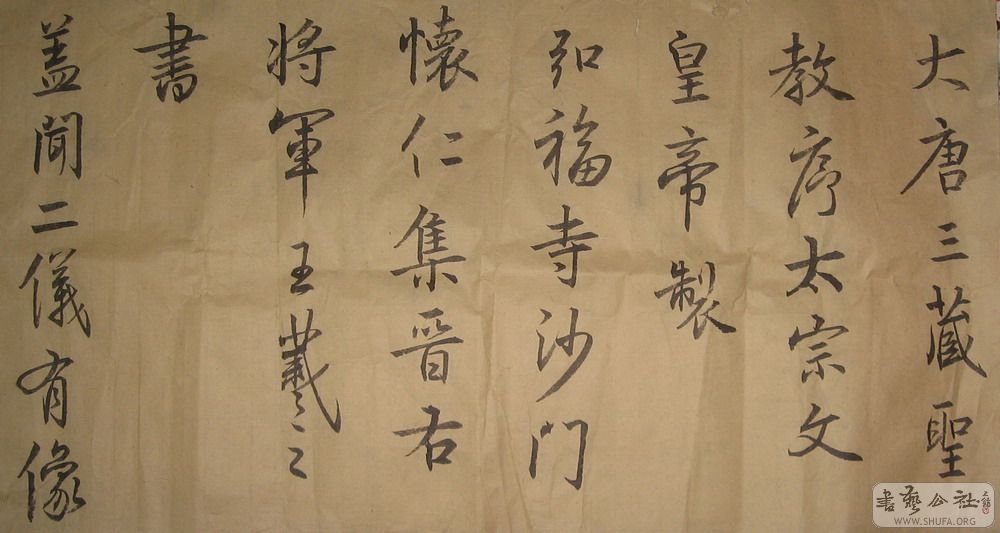 大唐三藏聖
教序太宗文
皇帝製
弘福寺沙門
懷仁集晉右
將軍王羲之
書
蓋聞二儀有像
書藝公社
WWW.SHUFA.ORG